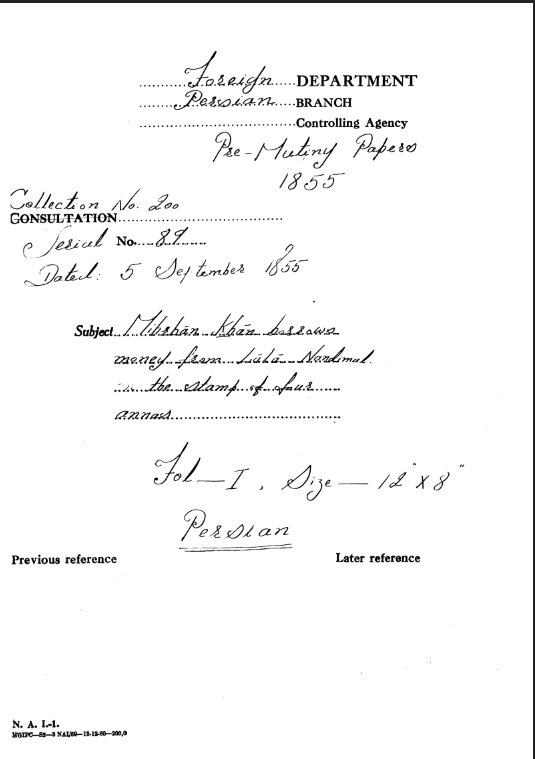 Foreign DEPARTMENT
Persian BRANCH
Controlling Agency
Pre-Mutiny Papers
1855
Collection No. 200
CONSULTATION
Serial No. 89
Dated: 5 September 1855
Subject Mibrhān Khān borrows
money from Lālā Nandmal
the stamp of four
annas
Fol—I, Size—12" X 8"
Persian
Previous reference Later reference
N. A. I.-1.
MGIPC—S2—3 NAI/59—12-12-60—200,0